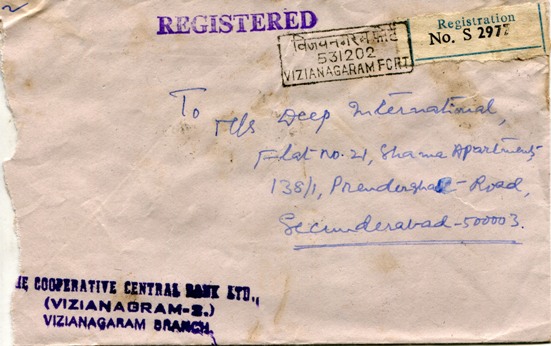 REGISTERED
विजयनगरम फोर्ट
531202
VIZIANAGARAM FORT
Registration
No. S 2977
To
M/s Deep International,
Flat no. 21, Sharma Apartments
138/1, Prenderghast Road,
Secunderabad-500003.
HE COOPERATIVE CENTRAL BANK LTD.,
(VIZIANAGRAM-2.)
VIZIANAGARAM BRANCH